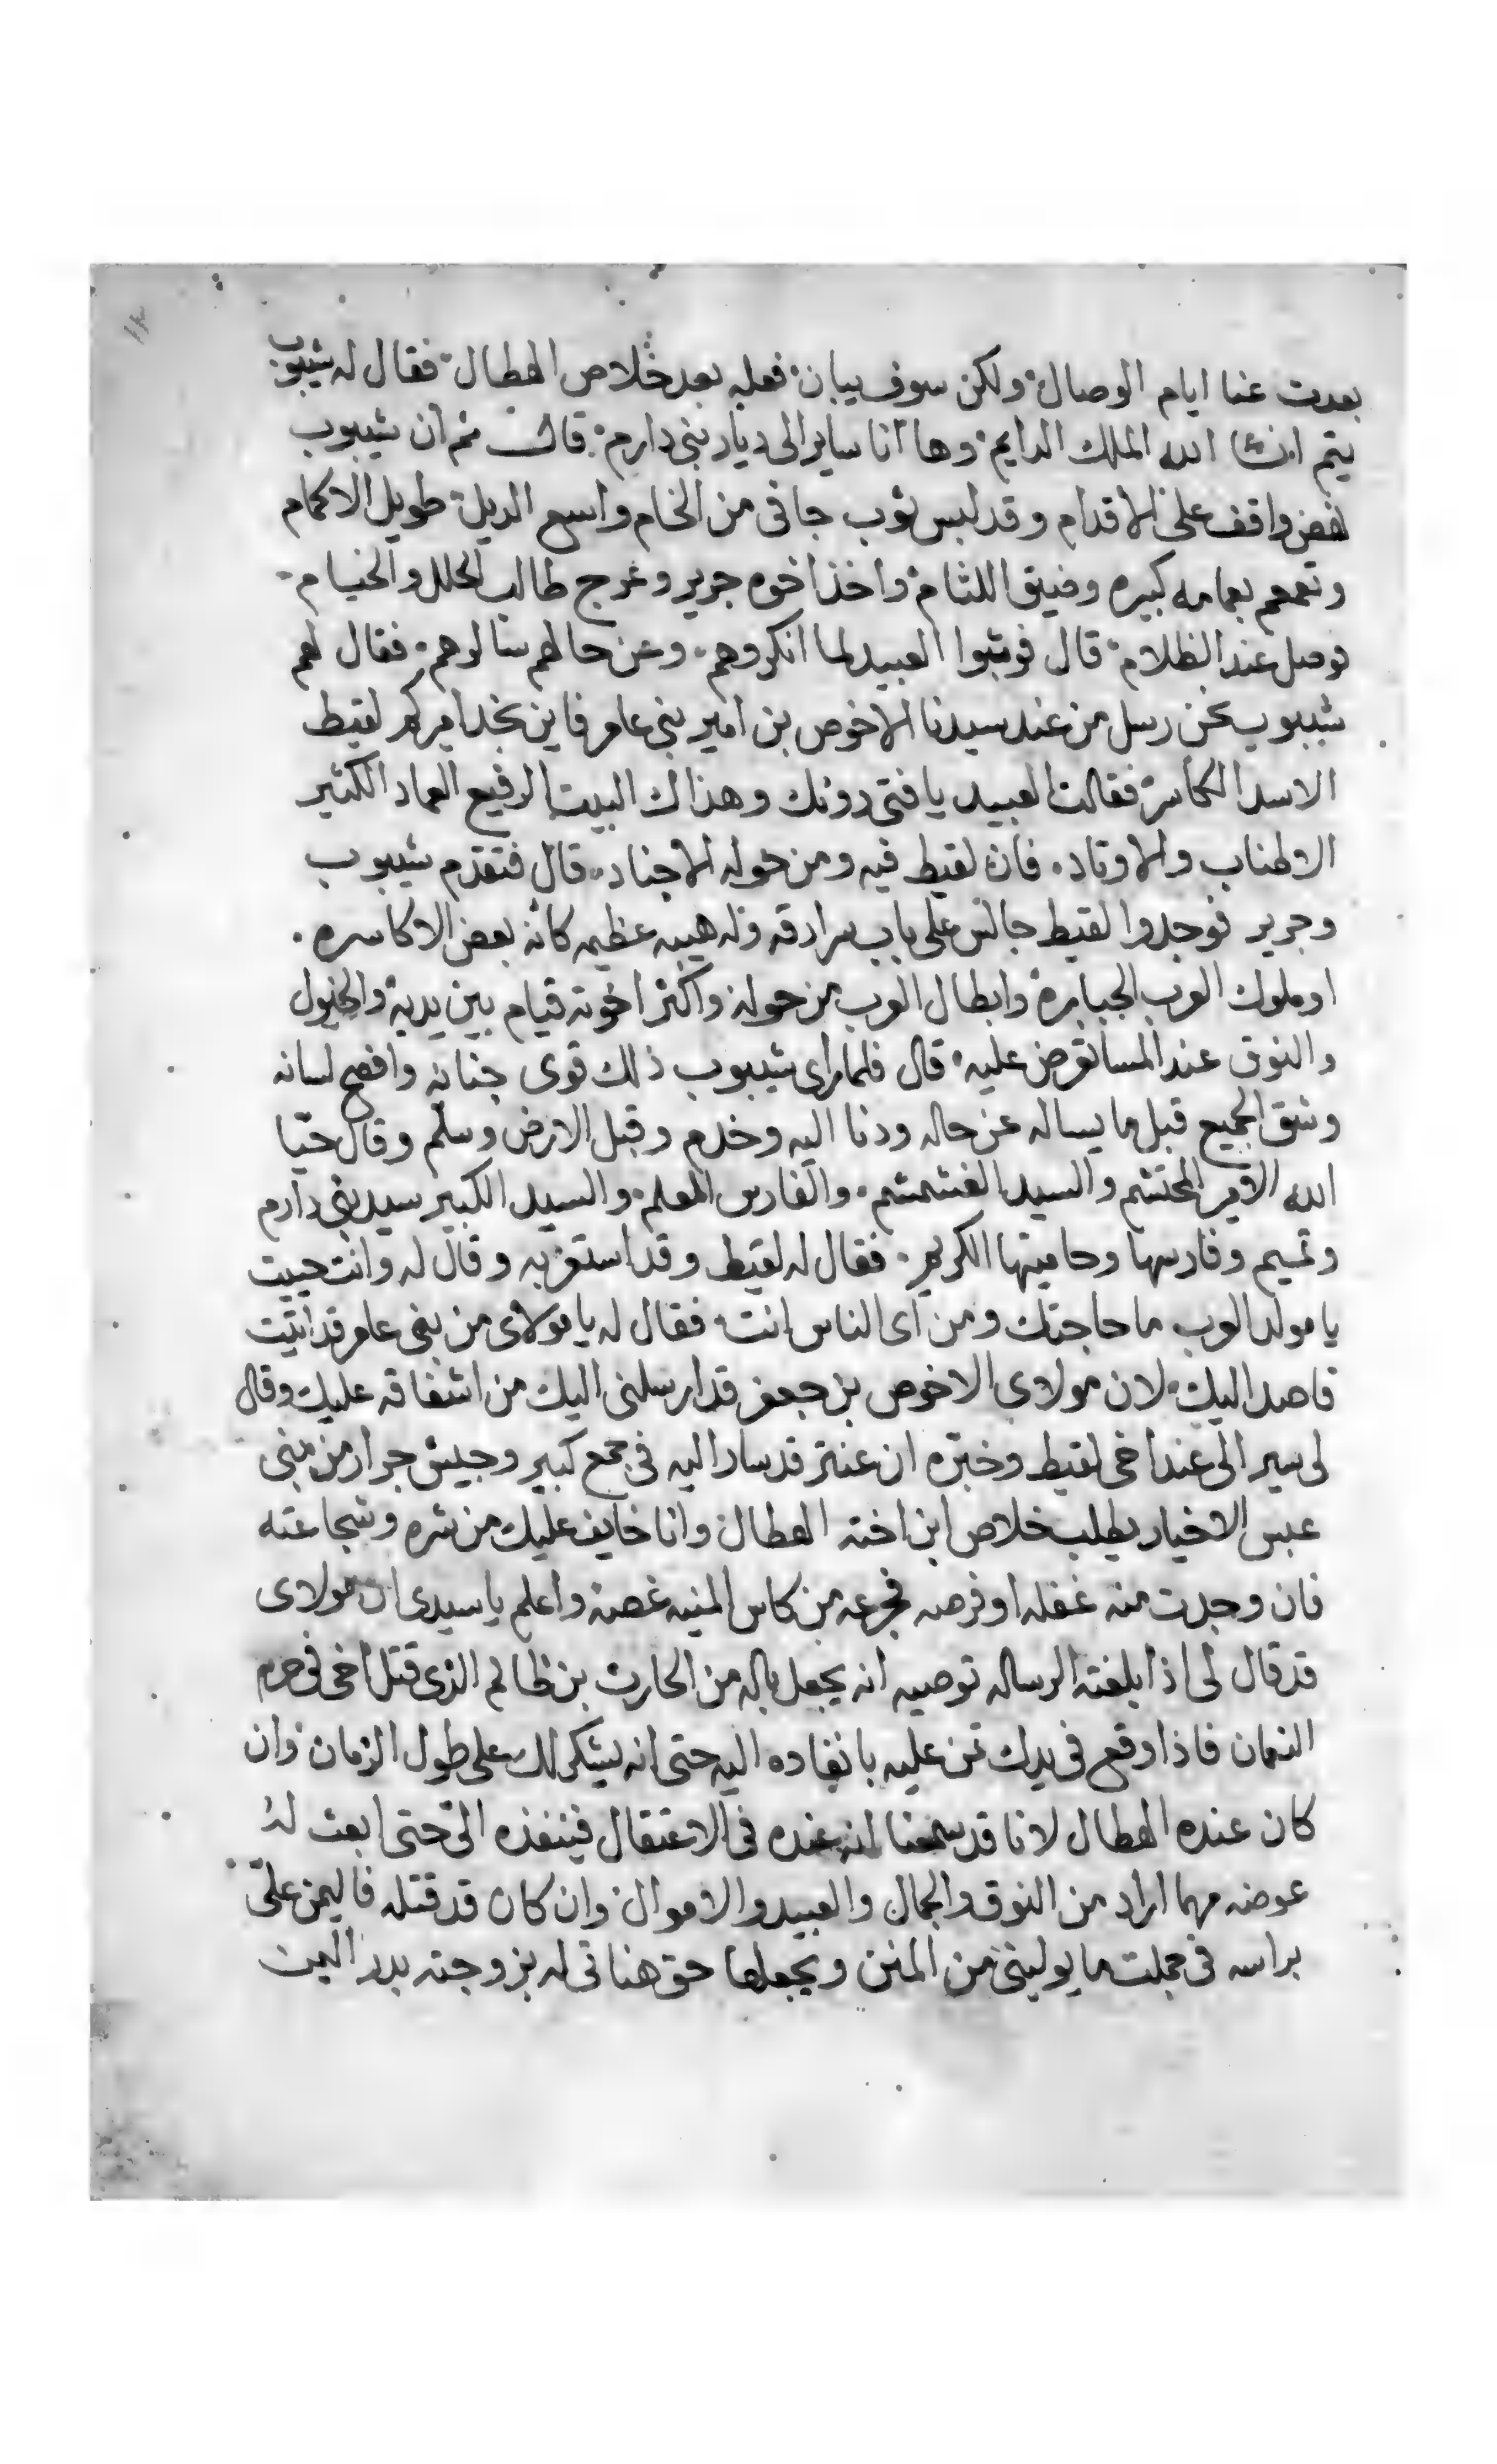 ١٢
بعدت عنا ايام الوصال ولكن سوف يبان فعله بعد خلاص الهطال فقال له شيبوب
يتم انشا الله الملك الدايم وها انا ساير الى ديار بني دارم قال ثم ان شيبوب
نهض واقف على الاقدام وقد لبس ثوب جافى من الخام واسع الديل طويل الاكمام
وتعمم بعمامه كبيره وضيق اللثام واخذ اخوه جرير وخرج طالب الحلل والخيام
فوصل عند الظلام قال فوثبوا العبيد لما انكروهم وعن حالهم سالوهم فقال لهم
شيبوب نحن رسل من عند سيدنا الاخوص بن امير بني عامر فاين نجد اميركم لقيط
الاسد الكاسر فقالت العبيد يا فتى دونك وهذاك البيت الرفيع العماد الكثير
الاطناب والاوتاد فان لقيط فيه ومن حوله الاجناد قال فتقدم شيبوب
وجرير فوجدوا لقيط جالس على باب سرادقه وله هيبه عظيمه كانه بعض الاكاسره
او ملوك العرب الجبابره وابطال العرب من حوله واكثر اخوته قيام بين يديه والخيول
والنوق عند المسا تعرض عليه قال فلما راى شيبوب ذلك قوى جنانه وافصح لسانه
وشق الجميع قبل ما يساله عن حاله ودنا اليه وخدم وقبل الارض وسلم وقال حيّا
الله الامير المحتشم والسيد الغشمشم والفارس المعلم والسيد الكبير سيد بني دارم
وتميم وفارسها وحاميتها الكريم فقال له لقيط وقد استعز به وقال له وانت حييت
يا مولد العرب ما حاجتك ومن اى الناس انت فقال له يا مولاى من بنى عامر قد اتيت
قاصد اليك لان مولاى الاخوص بن جعفر قد ارسلنى اليك من اشفاقه عليك وقال
لى سير الى عند اخى لقيط وخبّره ان عنتر قد سار اليه فى جمع كبير وجيش جرار من بنى
عبس الاخيار يطلب خلاص ابن اخته الهطال وانا خايف عليك من شره وشجاعته
فان وجدت منه غفله او فرصه فجرعه من كاس المنيه غصة واعلم يا سيدى ان مولاى
قد قال لى اذا بلغته الرساله توصيه انه يجعل باله من الحارث بن ظالم الذى قتل اخى فى حرم
النعمان فاذا وقع فى يدك تمن عليه بانفاده اليه حتى انه يشكر لك على طول الزمان وان
كان عنده الهطال لانا قد سمعنا انه عنده فى الاعتقال فينفذه الىّ حتى ابعث له
عوضه مهما اراد من النوق والجمال والعبيد والاموال وان كان قد قتله فاليمن علىّ
براسه فى جملت ما يولينى من المنن ويجعلها حق هناتى له بزوجته بدر اليمن